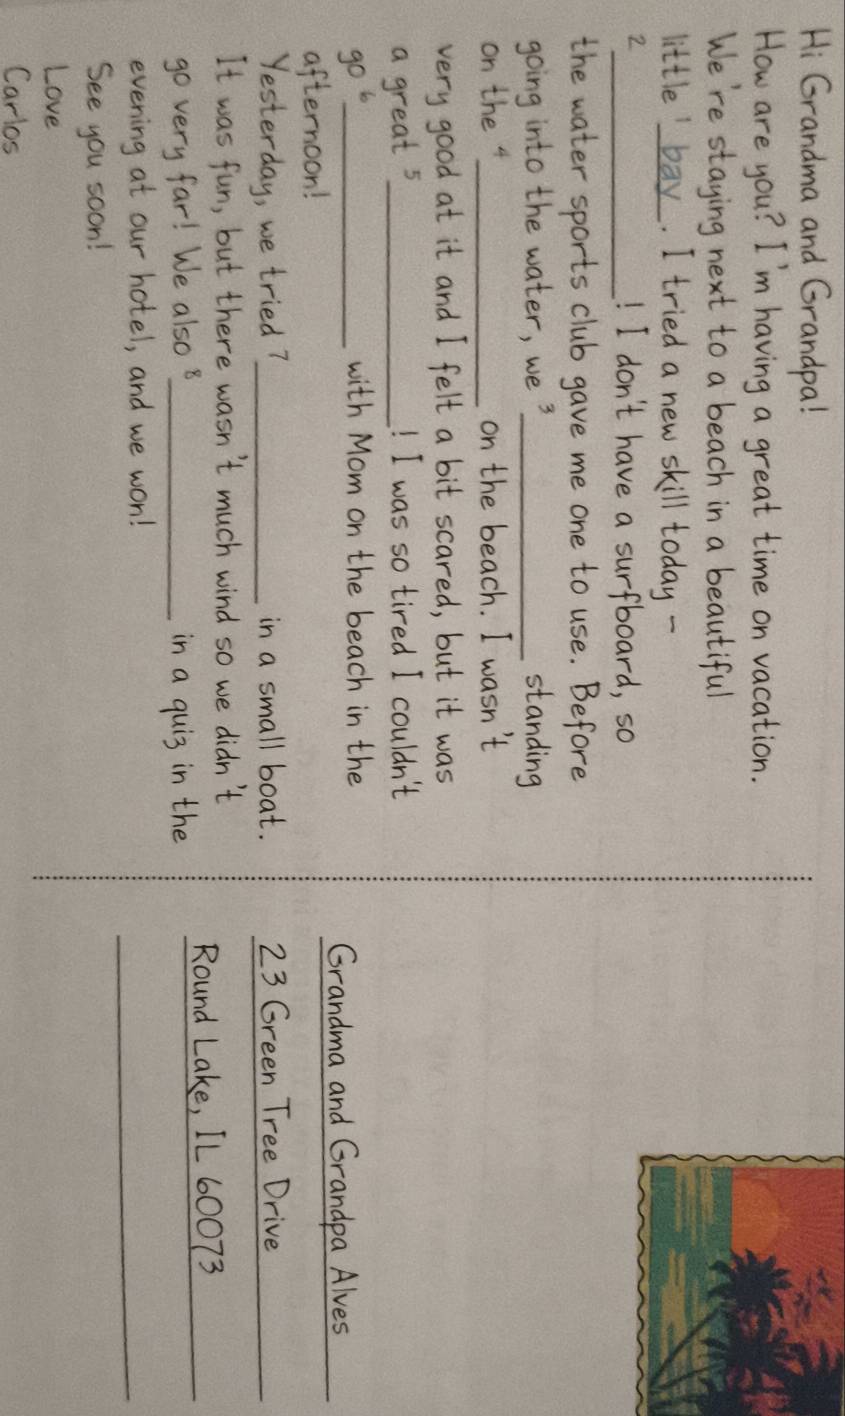 Hi Grandma and Grandpa!
How are you? I'm having a great time on vacation.
We're staying next to a beach in a beautiful
little 1 bay. I tried a new skill today –
2 ____________! I don't have a surfboard, so
the water sports club gave me one to use. Before
going into the water, we 3 ____________ standing
on the 4 ____________ on the beach. I wasn't
very good at it and I felt a bit scared, but it was
a great 5 ____________! I was so tired I couldn't
go 6 ____________ with Mom on the beach in the
afternoon!
Yesterday, we tried 7 ____________ in a small boat.
It was fun, but there wasn't much wind so we didn't
go very far! We also 8 ____________ in a quiz in the
evening at our hotel, and we won!
See you soon!
Love
Carlos
Grandma and Grandpa Alves
23 Green Tree Drive
Round Lake, IL 60073